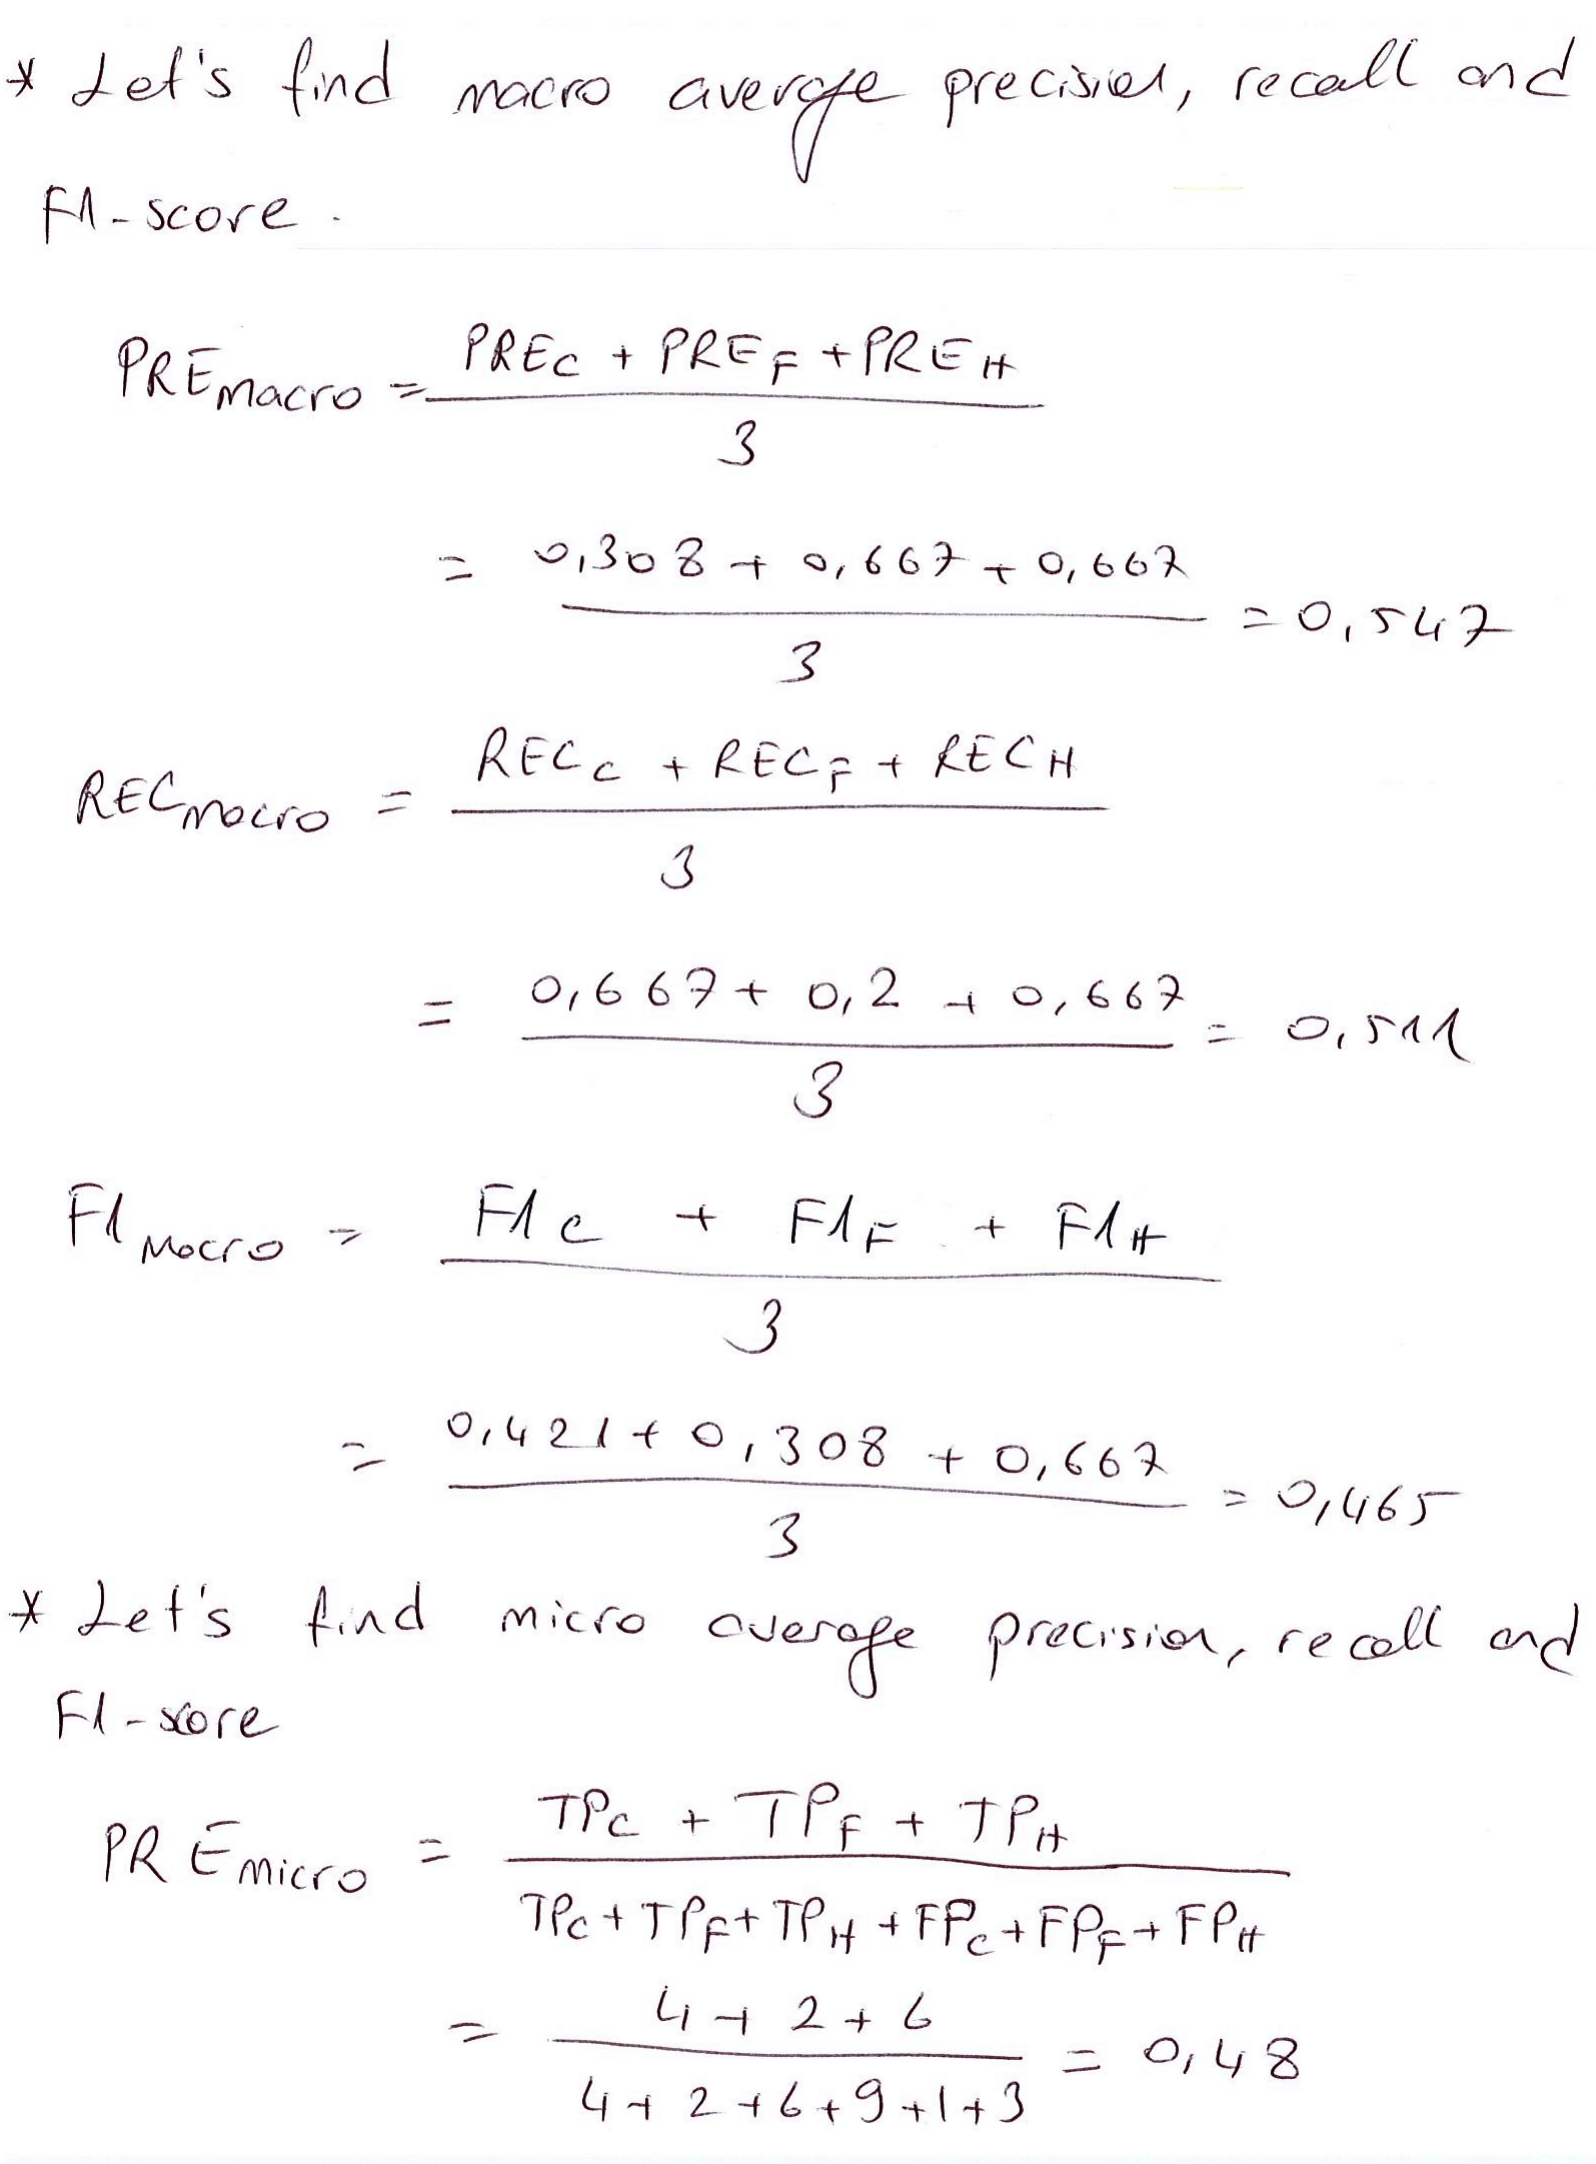 * Let's find macro average precision, recall and
F1-score.
PREmacro = PREC + PREF + PREH
3
= 0,308 + 0,667 + 0,667
3
= 0,547
RECmacro = RECC + RECF + RECH
3
= 0,667 + 0,2 + 0,667
3
= 0,511
F1Macro = F1C + F1F + F1H
3
= 0,421 + 0,308 + 0,667
3
= 0,465
* Let's find micro average precision, recall and
F1-score
PREmicro = TPC + TPF + TPH
TPC + TPF + TPH + FPC + FPF + FPH
= 4 + 2 + 6
4 + 2 + 6 + 9 + 1 + 3
= 0,48